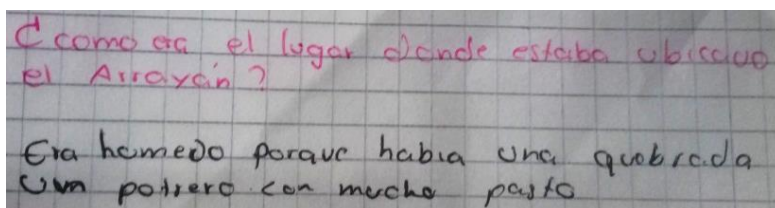 ¿como era el lugar donde estaba ubicado
el Arrayán?
Era homedo porque habia una quobrada
Um potrero con mucho pasto